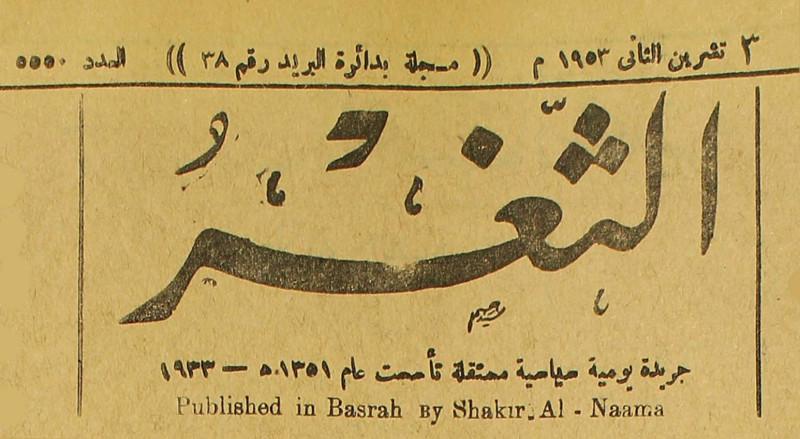 ٣ تشرين الثاني ١٩٥٣ م (( مسجلة بدائرة البريد رقم ٣٨ )) العدد ٥٥٥٠
الثَّغْر
جريدة يومية سياسية مستقلة تأسست عام ١٣٥١ ه — ١٩٣٣
Published in Basrah By Shakir Al - Naama